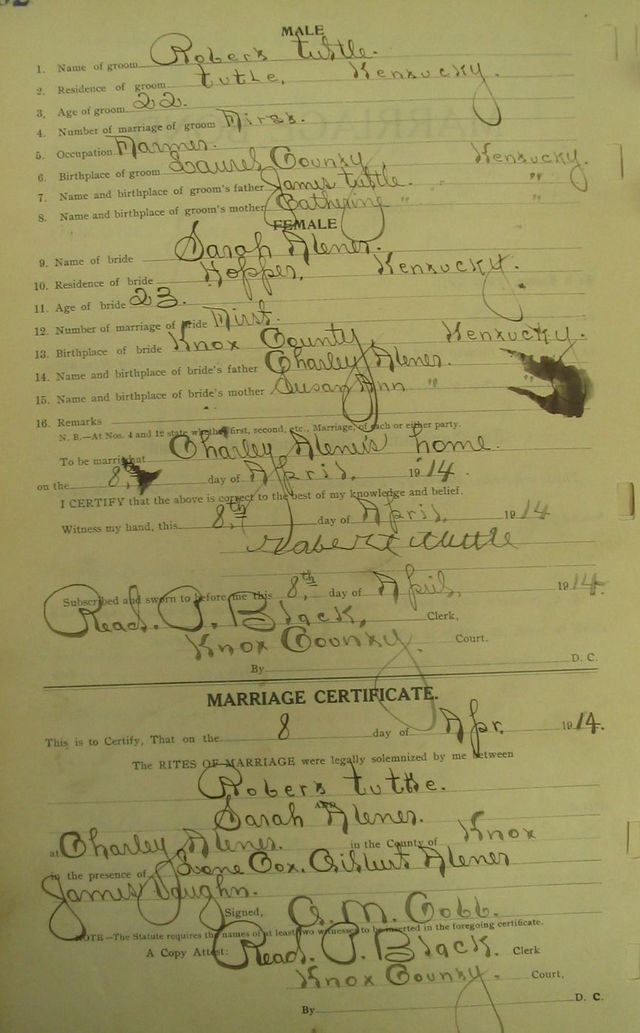 MALE
1. Name of groom Robert Tuttle.
2. Residence of groom Tutle, Kentucky.
3. Age of groom 22.
4. Number of marriage of groom First.
5. Occupation Farmer.
6. Birthplace of groom Laurel County, Kentucky.
7. Name and birthplace of groom's father James Tuttle. "
8. Name and birthplace of groom's mother Catherine " "
FEMALE
9. Name of bride Sarah
10. Residence of bride Hopper, Kentucky.
11. Age of bride 23.
12. Number of marriage of bride First.
13. Birthplace of bride Knox County, Kentucky.
14. Name and birthplace of bride's father Charley
15. Name and birthplace of bride's mother Susan Ann "
16. Remarks
N. B.—At Nos. 4 and 12 state whether first, second, etc., Marriage, of each or either party.
To be married at Charley home.
on the 8th day of April, 1914.
I CERTIFY that the above is correct to the best of my knowledge and belief.
Witness my hand, this 8th day of April, 1914
Robert Tuttle
Subscribed and sworn to before me this 8th day of April, 1914.
Read. P. Black, Clerk,
Knox County. Court.
By D. C.
MARRIAGE CERTIFICATE.
This is to Certify, That on the 8 day of Apr. 1914.
The RITES OF MARRIAGE were legally solemnized by me between
Robert Tuttle.
AND
Sarah
at Charley in the County of Knox
in the presence of Cox. Gilbert
James Vaughn.
Signed, G. M. Cobb.
NOTE—The Statute requires the names of at least two witnesses to be inserted in the foregoing certificate.
A Copy Attest: Read. P. Black. Clerk
Knox County. Court,
By D. C.